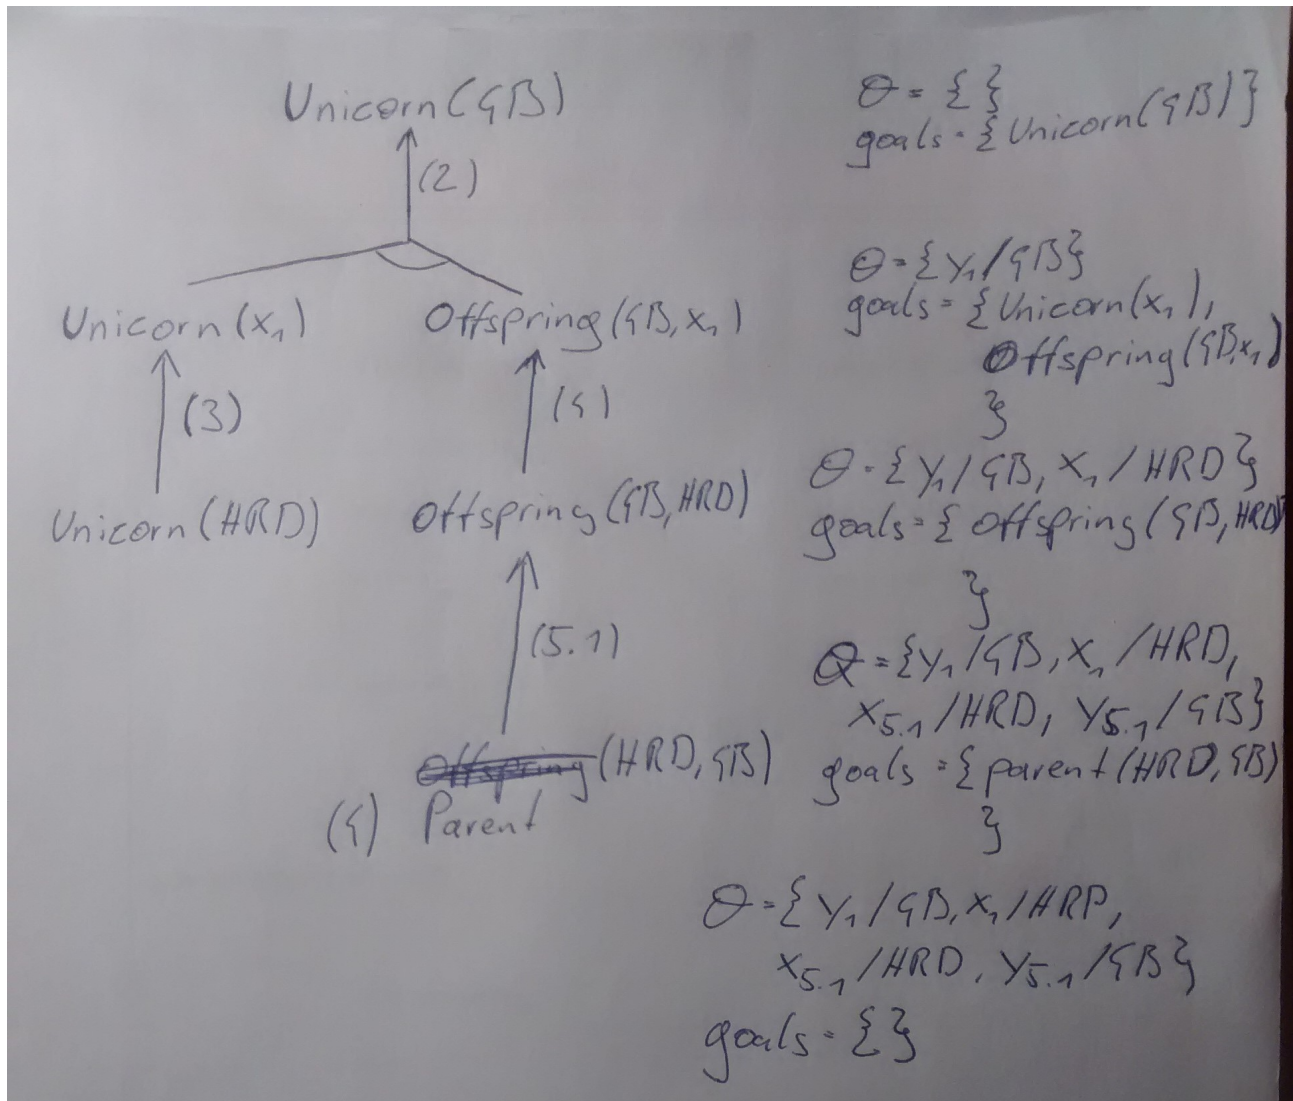 Unicorn(GB)
(2)
Unicorn(x₁)
Offspring(GB,x₁)
(3)
(4)
Unicorn(HRD)
Offspring(GB,HRD)
(5.1)
Offspring (HRD,GB)
(4) Parent
θ = { }
goals = {Unicorn(GB)}
θ = {y₁/GB}
goals = {Unicorn(x₁),
Offspring(GB,x₁)
}
θ = {y₁/GB, x₁/HRD}
goals = { Offspring(GB,HRD)
}
θ = {y₁/GB, x₁/HRD,
x₅.₁/HRD, y₅.₁/GB}
goals = {parent(HRD,GB)
}
θ = {y₁/GB, x₁/HRD,
x₅.₁/HRD, y₅.₁/GB}
goals = { }